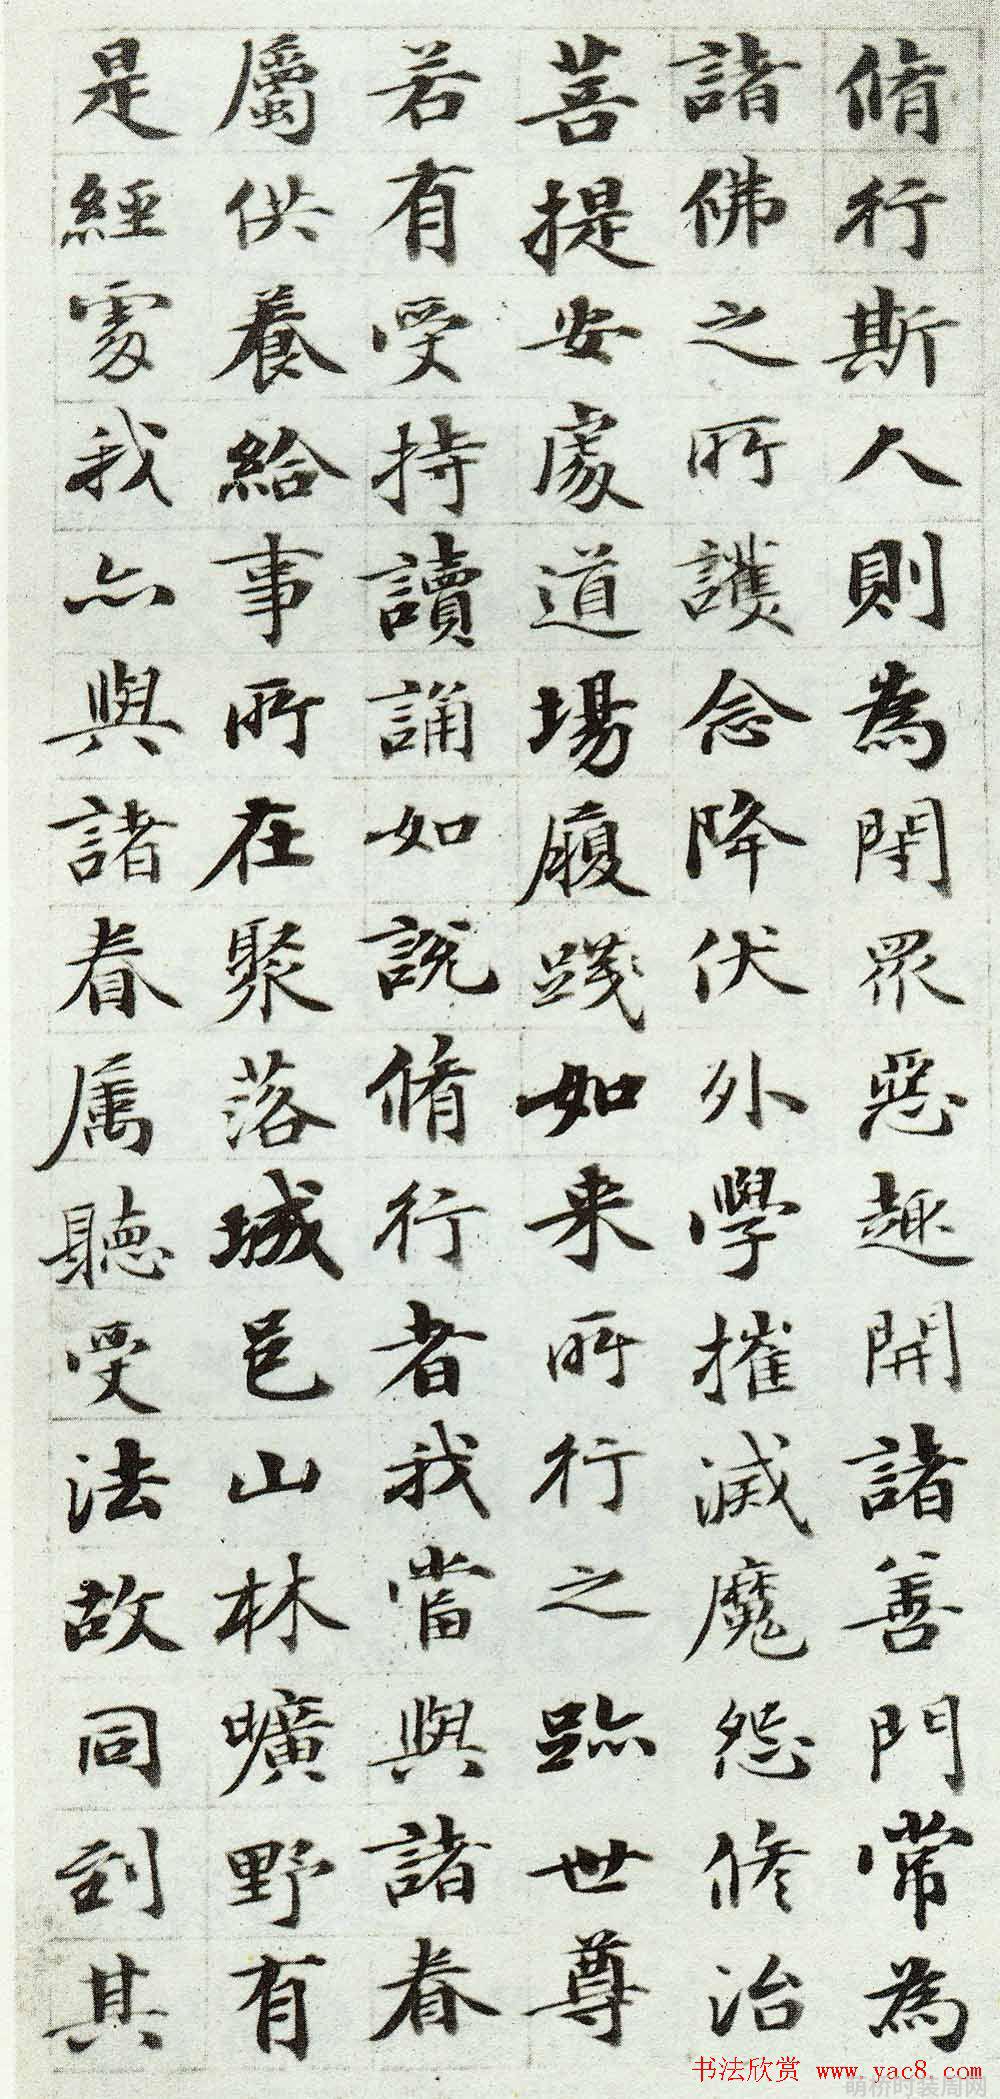 脩行斯人則為閇眾惡趣開諸善門常為
諸佛之所護念降伏外學摧滅魔怨修治
菩提安處道場履踐如来所行之跡世尊
若有受持讀誦如說脩行者我當與諸眷
屬供養給事所在聚落城邑山林曠野有
是經處我亦與諸眷屬聽受法故同到其
书法欣赏 www.yac8.com
萌娇时装周网